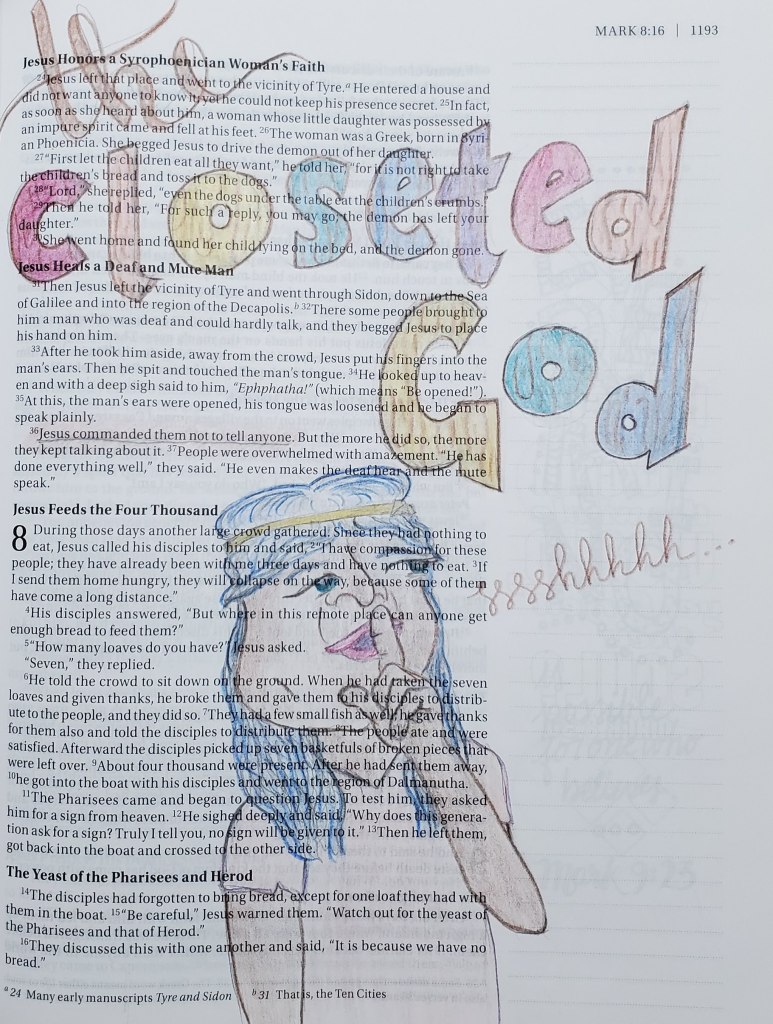 MARK 8:16 | 1193
the
closeted
God
sssshhhhh...
Jesus Honors a Syrophoenician Woman's Faith
24Jesus left that place and went to the vicinity of Tyre.a He entered a house and
did not want anyone to know it; yet he could not keep his presence secret. 25In fact,
as soon as she heard about him, a woman whose little daughter was possessed by
an impure spirit came and fell at his feet. 26The woman was a Greek, born in Syri-
an Phoenicia. She begged Jesus to drive the demon out of her daughter.
27"First let the children eat all they want," he told her, "for it is not right to take
the children's bread and toss it to the dogs."
28"Lord," she replied, "even the dogs under the table eat the children's crumbs."
29Then he told her, "For such a reply, you may go; the demon has left your
daughter."
30She went home and found her child lying on the bed, and the demon gone.
Jesus Heals a Deaf and Mute Man
31Then Jesus left the vicinity of Tyre and went through Sidon, down to the Sea
of Galilee and into the region of the Decapolis.b 32There some people brought to
him a man who was deaf and could hardly talk, and they begged Jesus to place
his hand on him.
33After he took him aside, away from the crowd, Jesus put his fingers into the
man's ears. Then he spit and touched the man's tongue. 34He looked up to heav-
en and with a deep sigh said to him, "Ephphatha!" (which means "Be opened!").
35At this, the man's ears were opened, his tongue was loosened and he began to
speak plainly.
36Jesus commanded them not to tell anyone. But the more he did so, the more
they kept talking about it. 37People were overwhelmed with amazement. "He has
done everything well," they said. "He even makes the deaf hear and the mute
speak."
Jesus Feeds the Four Thousand
8 During those days another large crowd gathered. Since they had nothing to
eat, Jesus called his disciples to him and said, 2"I have compassion for these
people; they have already been with me three days and have nothing to eat. 3If
I send them home hungry, they will collapse on the way, because some of them
have come a long distance."
4His disciples answered, "But where in this remote place can anyone get
enough bread to feed them?"
5"How many loaves do you have?" Jesus asked.
"Seven," they replied.
6He told the crowd to sit down on the ground. When he had taken the seven
loaves and given thanks, he broke them and gave them to his disciples to distrib-
ute to the people, and they did so. 7They had a few small fish as well; he gave thanks
for them also and told the disciples to distribute them. 8The people ate and were
satisfied. Afterward the disciples picked up seven basketfuls of broken pieces that
were left over. 9About four thousand were present. After he had sent them away,
10he got into the boat with his disciples and went to the region of Dalmanutha.
11The Pharisees came and began to question Jesus. To test him, they asked
him for a sign from heaven. 12He sighed deeply and said, "Why does this genera-
tion ask for a sign? Truly I tell you, no sign will be given to it." 13Then he left them,
got back into the boat and crossed to the other side.
The Yeast of the Pharisees and Herod
14The disciples had forgotten to bring bread, except for one loaf they had with
them in the boat. 15"Be careful," Jesus warned them. "Watch out for the yeast of
the Pharisees and that of Herod."
16They discussed this with one another and said, "It is because we have no
bread."
a 24 Many early manuscripts Tyre and Sidon b 31 That is, the Ten Cities